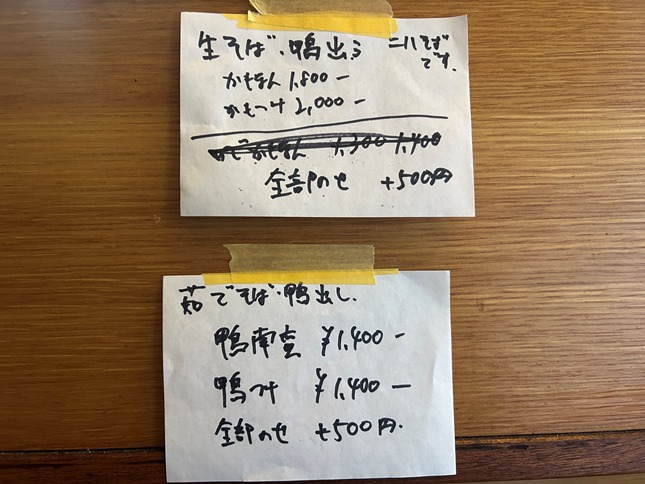 生そば・鴨出う 二八そばです。
かもなん 1,800ー
かもつけ 2,000ー
ゆでかもなん 1,300 1,400
全部のせ +500円
茹でそば・鴨出し.
鴨南蛮 ¥1,400ー
鴨つけ ¥1,400ー
全部のせ +500円.